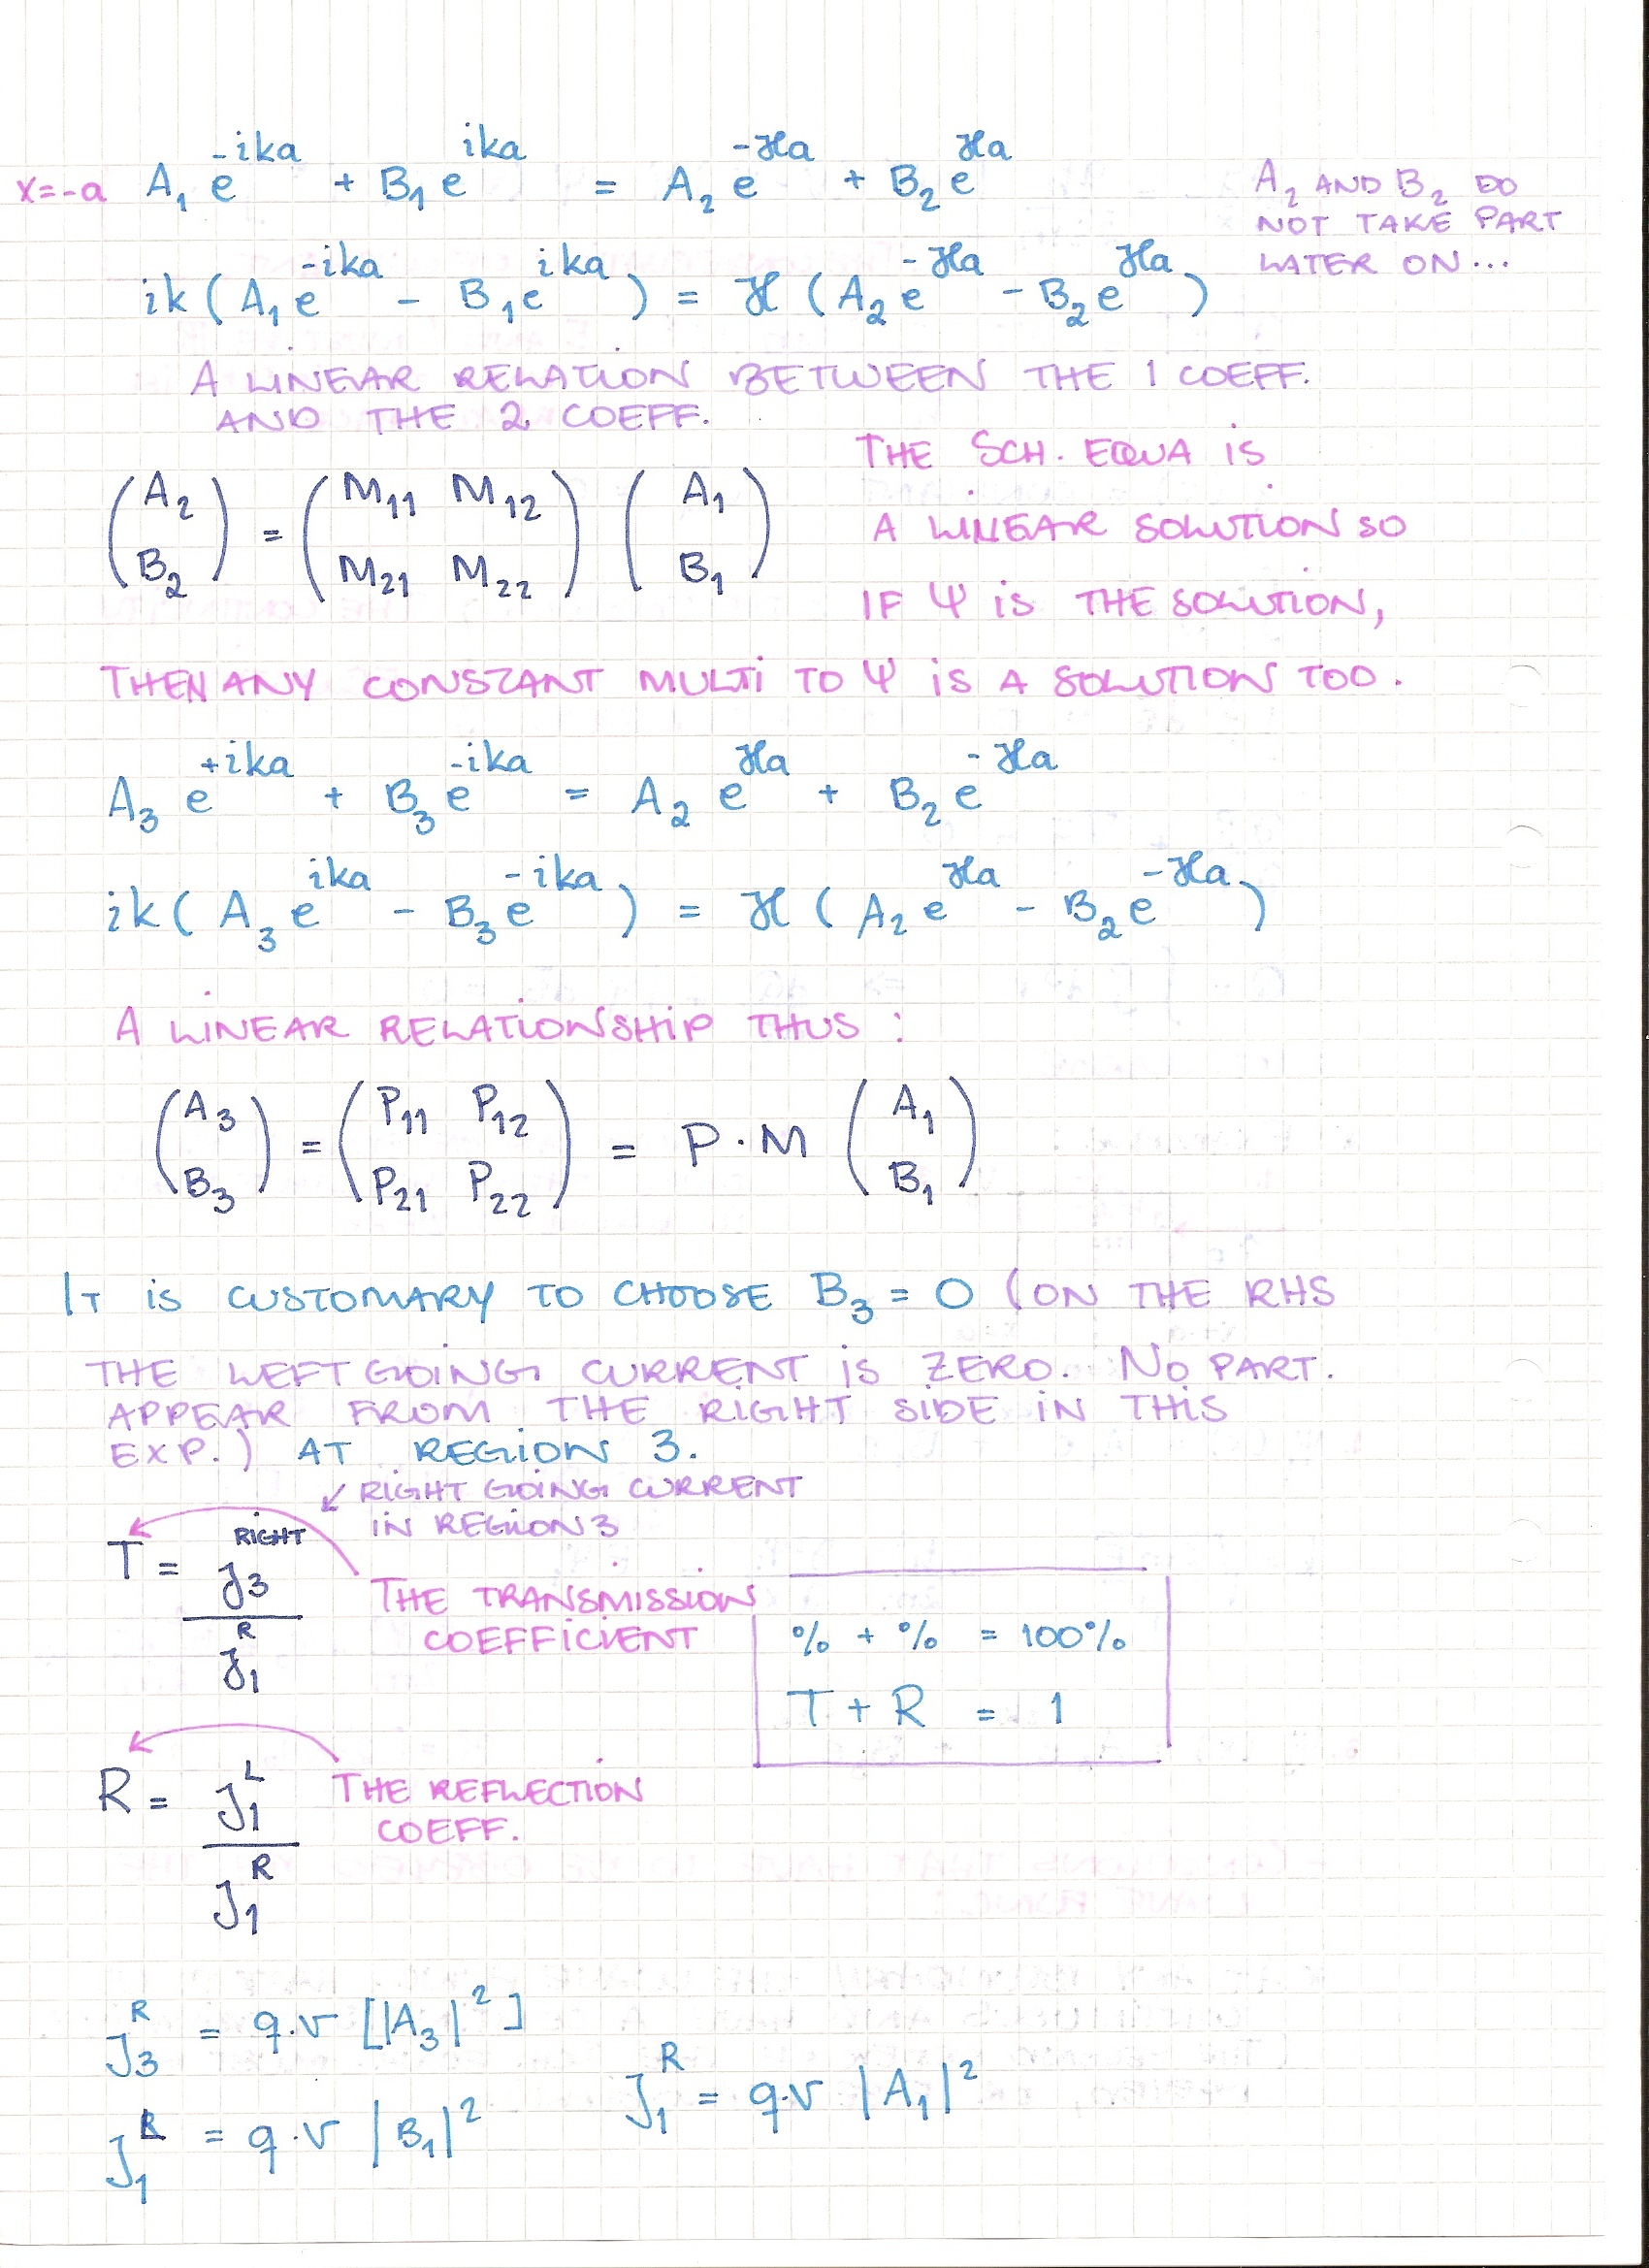 x=-a A₁ e^{-ika} + B₁ e^{ika} = A₂ e^{-ℋa} + B₂ e^{ℋa}
A₂ AND B₂ DO
NOT TAKE PART
LATER ON...
ik ( A₁ e^{-ika} - B₁ e^{ika} ) = ℋ ( A₂ e^{-ℋa} - B₂ e^{ℋa} )
A LINEAR RELATION BETWEEN THE 1 COEFF.
AND THE 2 COEFF.
(A₂ B₂) = (M₁₁ M₁₂ M₂₁ M₂₂) (A₁ B₁)
THE SCH. EQUA IS
A LINEAR SOLUTION SO
IF Ψ IS THE SOLUTION,
THEN ANY CONSTANT MULTI TO Ψ IS A SOLUTION TOO.
A₃ e^{+ika} + B₃ e^{-ika} = A₂ e^{ℋa} + B₂ e^{-ℋa}
ik ( A₃ e^{ika} - B₃ e^{-ika} ) = ℋ ( A₂ e^{ℋa} - B₂ e^{-ℋa} )
A LINEAR RELATIONSHIP THUS :
(A₃ B₃) = (P₁₁ P₁₂ P₂₁ P₂₂) = P·M (A₁ B₁)
IT IS CUSTOMARY TO CHOOSE B₃ = 0 (ON THE RHS
THE LEFT GOING CURRENT IS ZERO. NO PART.
APPEAR FROM THE RIGHT SIDE IN THIS
EXP.) AT REGION 3.
↙ RIGHT GOING CURRENT
IN REGION 3
T = J₃^{RIGHT} / J₁^{R}
THE TRANSMISSION
COEFFICIENT
% + % = 100%
T + R = 1
R = J₁^{L} / J₁^{R}
THE REFLECTION
COEFF.
J₃^{R} = q·v [|A₃|²]
J₁^{R} = q·v |A₁|²
J₁^{L} = q·v |B₁|²